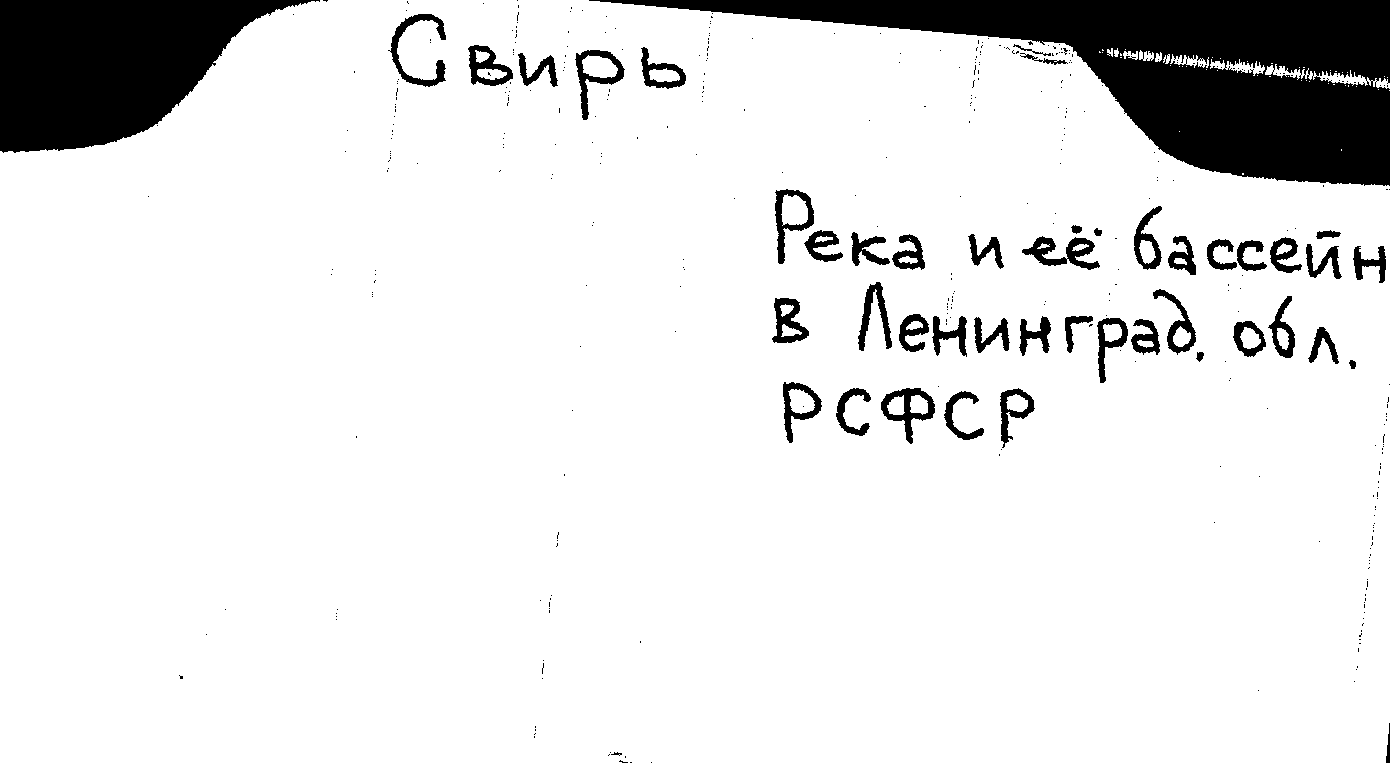 Свирь
Река и её бассейн
в Ленинград. обл.
РСФСР